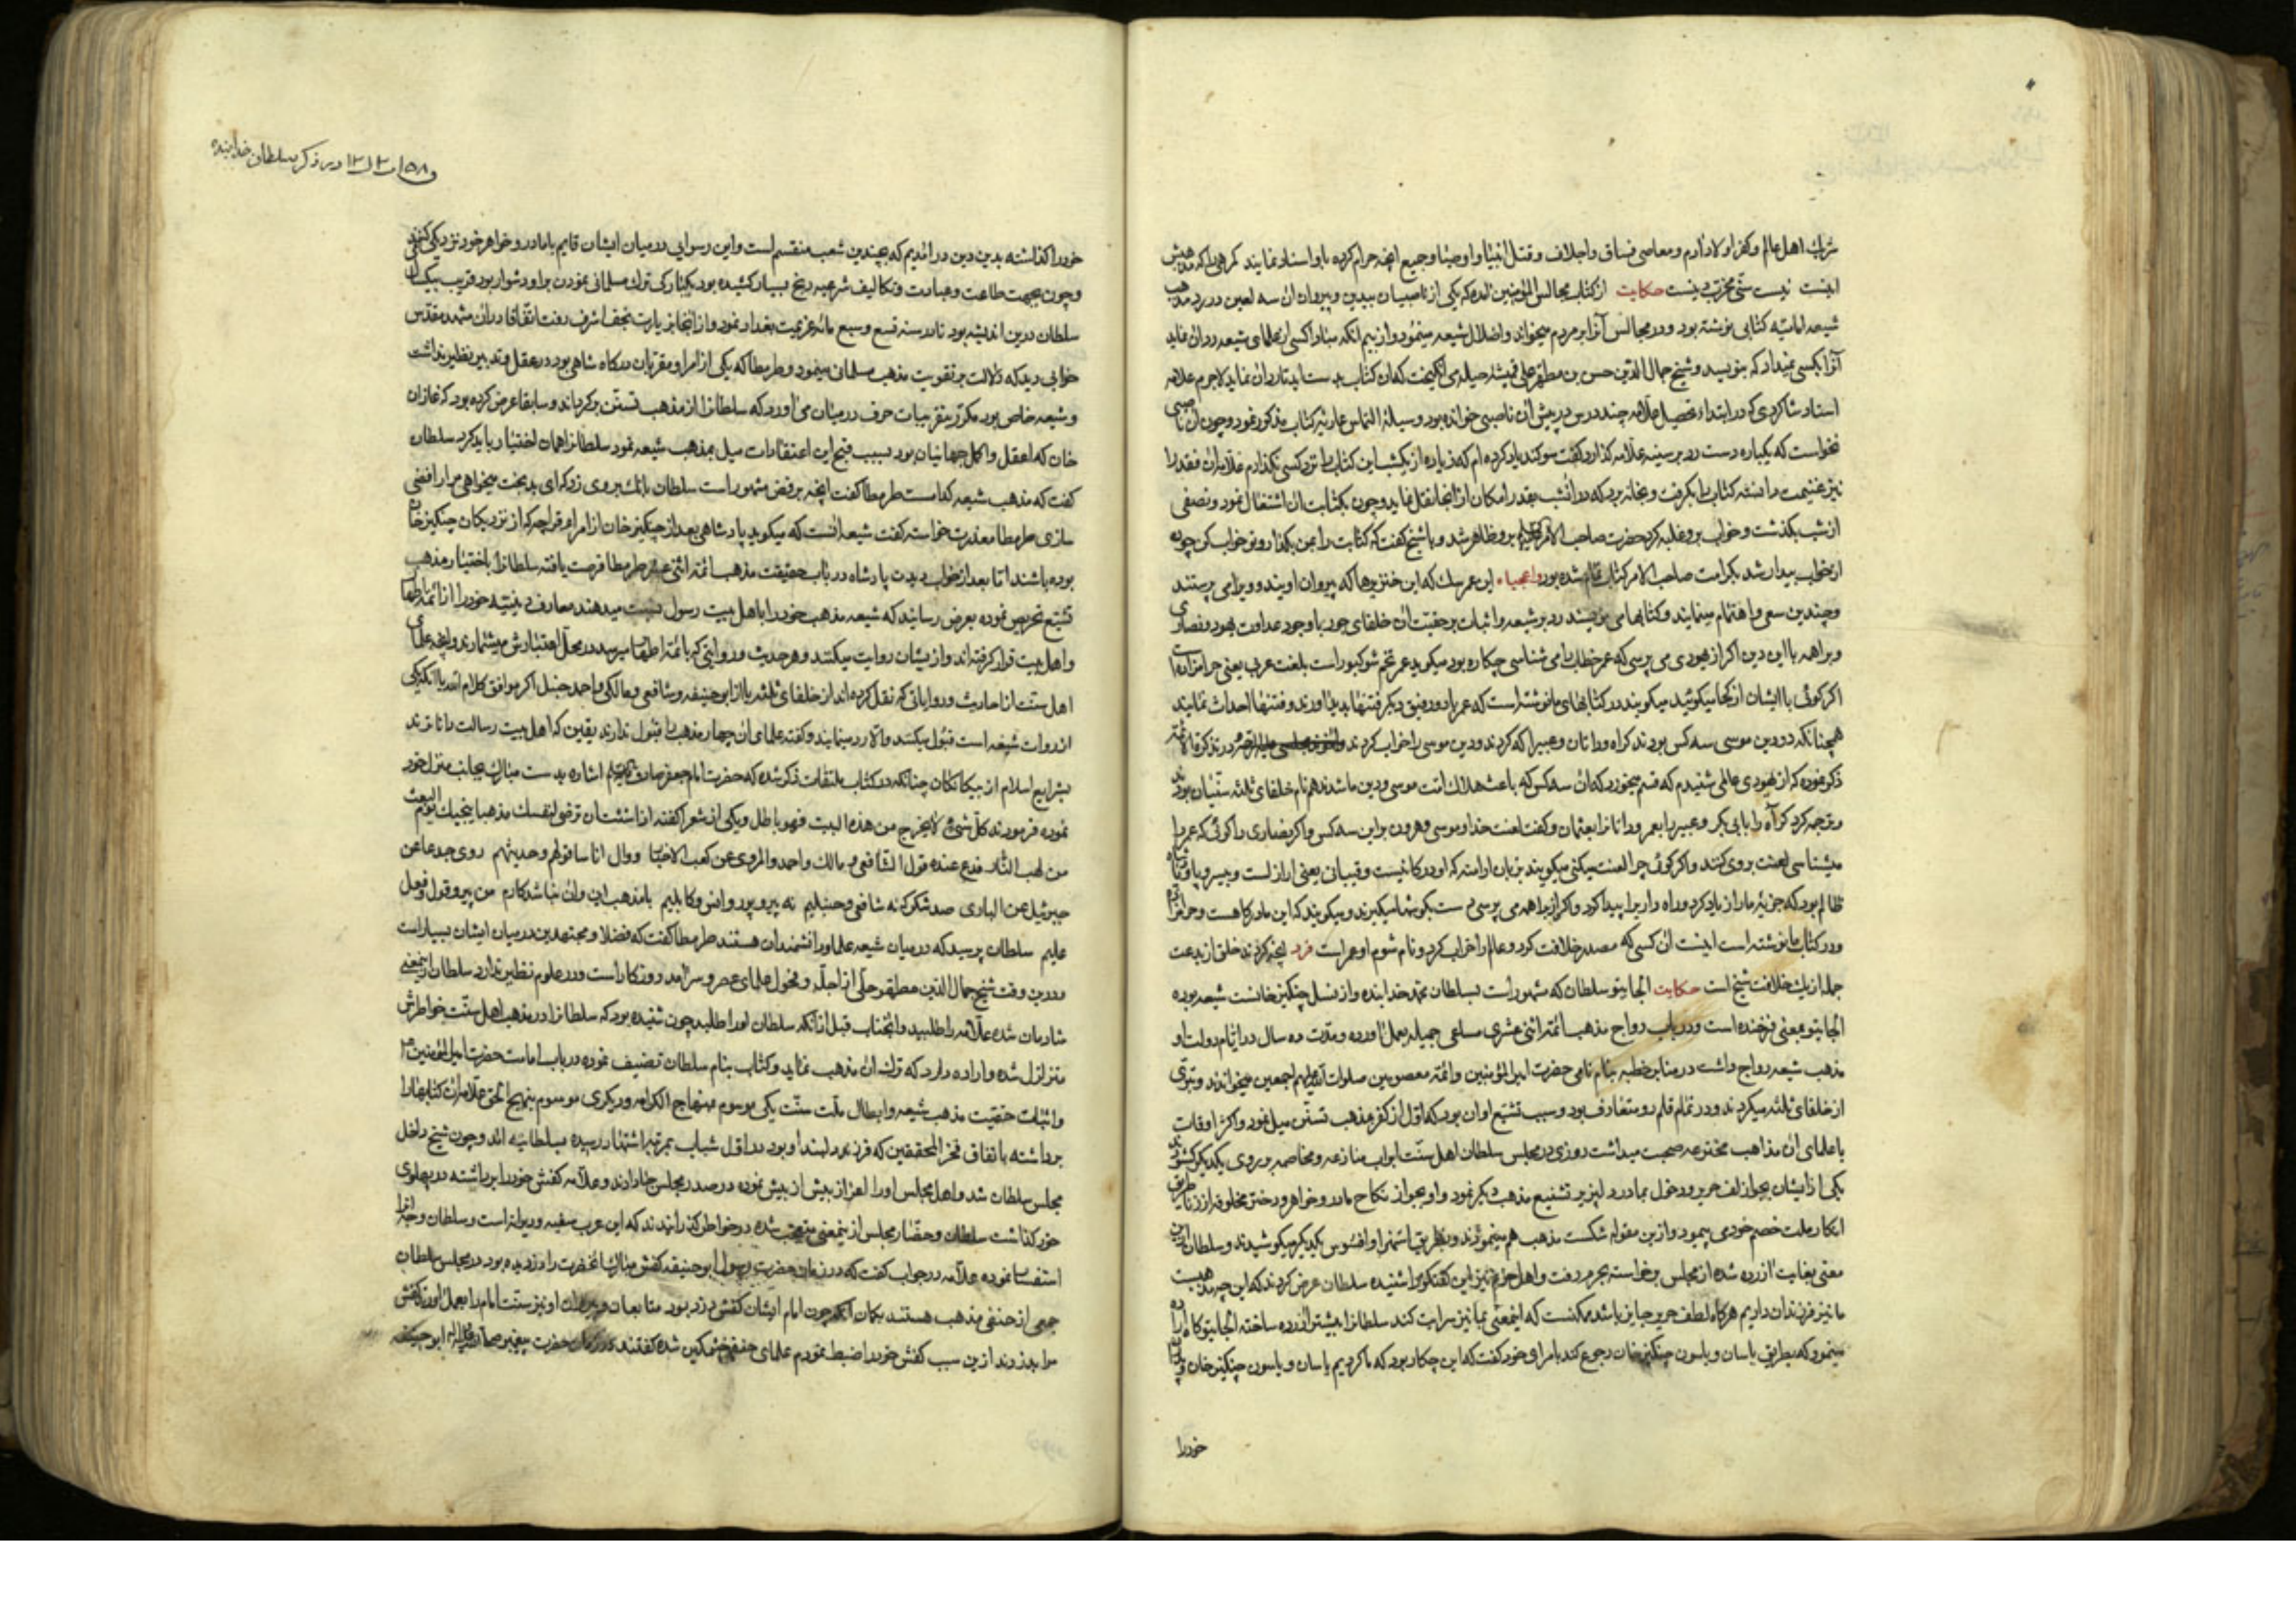 شرك اهل عالم و كفر اولاد آدم و معاصی فساق و اجلاف و قتل انبیا و اوصیا و جمیع آنچه حرام کرده باو اسناد نمایند کرهی را که مذهبش
اینست نیست سنی مخرب دینست حکایت از کتاب مجالس المؤمنین که یکی از ناصبیان بیدین و پیروان آن سه لعین در رد مذهب
شیعه امامیه کتابی نوشته بود و در مجالس آنرا بر مردم میخواند و اضلال شیعه مینمود و از بیم آنکه مبادا کسی از علمای شیعه رد آن نماید
آنرا بکسی نمیداد که بنویسد و شیخ جمال الدین حسن بن مطهر حلی همیشه حیله می انگیخت که آن کتاب بدست آید تا رد آن نماید لاجرم علاقه
استاد شاکردی که در ابتداء تحصیل علامه چند درس در پیش آن ناصبی خوانده بود وسیلۀ التماس عاریه کتاب مذکور نمود و چون آن ناصبی
نخواست که یکباره دست رد بر سینه علامه گذارد گفت سوکند یاد کرده ام که زیاده از یکشب این کتاب را نزد کسی نگذارم علامه آن قدر را
نیز غنیمت دانسته کتاب را بگرفت و بخانه برد که در آنشب بقدر امکان از آنجا نقل نماید و چون بکتابت آن اشتغال نمود و نصفی
از شب بگذشت و خواب برو غلبه کرد حضرت صاحب الامر برو ظاهر شد و با شیخ گفت که کتابت را بمن بگذار و تو خواب کن چون
از خواب بیدار شد بکرامت صاحب الامر کتاب تمام شده بود واعجباه این عمر سك که این خنزیرها که پیروان اویند و ویرا می پرستند
و چندین سعی و اهتمام مینمایند و کتابها می نویسند رد بر شیعه و اثبات بر حقیت آن خلفای جور با وجود عداوت یهود و نصاری
و براهمه با این دین اگر از یهودی می پرسی که عمر خطاب را می شناسی چکاره بود میگوید عمر تخم شوکبور است بلغت عربی یعنی حرامزاده است
اگر گوئی با ایشان از کجا میگوئید میگویند در کتابهای ما نوشته است که عمر با دو رفیق دیگر فتنها پدید آورند و فتنها احداث نمایند
همچنانکه در دین موسی سه کس بودند کراه و داتان و عبیرا که کردند و دین موسی را خراب کردند در تذکرة الائمه
ذکر نموده که از یهودی عالمی شنیدم که قسم میخورد که آن سه کس که باعث هلاك امت موسی و دین ما شدند هم نام خلفای ثلثه سنیان بودند
و ترجمه کرد کراه را بابی بکر و عبیر را بعمر و داتان را بعثمان و گفت لعنت خدا و موسی و هرون بر این سه کس و اگر نصاری را گوئی که عمر را
میشناسی لعنت بروی کنند و اگر گوئی چرا لعنت میکنی میگویند بزبان ارامنه که
ظالم بود که جزیه ما را زیاد کرد و راه وار برا پیدا کرد و اگر از براهمه می پرسی دست بگوشها میگیرند و میگویند که این مادرکاهست و حرامزاده
و در کتاب ما نوشته است اینست آن کسی که مصدر خلافت کرد و عالم را خراب کرد و نام شوم او عمر است فرد آنچه کردند خلق از بدعت
جمله از یك خلافت شیخ است حکایت الجایتو سلطان که مشهور است بسلطان محمد خدابنده و از نسل چنکیز خانست شیعه بوده
الجایتو بمعنی فرخنده است و در باب رواج مذهب ائمه اثنی عشری مساعی جمیله بعمل آورده و مدت ده سال در ایام دولت او
مذهب شیعه رواج داشت در منابر خطبه بنام نامی حضرت امیر المؤمنین و ائمه معصومین صلوات الله علیهم اجمعین میخواندند و تبری
از خلفای ثلثه میکردند و در تمام قلم رو متعارف بود و سبب تشیع او آن بود که اول از کفر مذهب تسنن میل نمود و اکثر اوقات
با علمای آن مذاهب مخترعه صحبت میداشت روزی در مجلس سلطان اهل سنت ابواب منازعه و مخاصمه بر روی یکدیگر گشودند
یکی از ایشان بجواز لف حریر و دخول بمادر دلپزیر تشنیع مذهب دیگر نمود و او بجواز نکاح مادر و خواهر و دختر مخلوقه از زنا
انکار ملت خصم خودی میمود و ازین مقوله شکست مذهب هم مینمودند و بطریق استهزا و افسوس یکدیگر میکوشیدند و سلطان ازین
معنی بغایت آزرده شده از مجلس برخواسته بحرم رفت و اهل حرم نیز این گفتگو را شنیده سلطان عرض کردند که این چه مذهبیست
ما نیز فرزندان داریم هرگاه لطف حریر جایز باشد ممکنست که اینمعنی بما نیز سرایت کند سلطانرا بیشتر آزرده ساخته الجایتو اراده
مینمود که بطریق یاسان و یاسون چنکیز خان رجوع کند بامرای خود گفت که این چکار بود که ما کردیم یاسان و یاسون چنکیز خان
خود را
در ذکر سلطان خدابنده
خود را گذاشته بدین دین در آمدیم که بچندین شعب منقسم است و این رسوایی در میان ایشان قایم با مادر و خواهر خود نزدیکی کنند
و چون بجهت طاعت و عبادت و تکالیف شرعیه رنج بسیار کشیده بود بیکبارکی ترك مسلمانی نمودن بر او دشوار بود قریب بیکسال
سلطان درین اندیشه بود تا در سنه تسع و سبع مائه عزیمت بغداد نمود و از آنجا بزیارت نجف اشرف رفت اتفاقا در آن مشهد مقدس
خوابی دید که دلالت بر تقویت مذهب مسلمانی مینمود و طرمطا که یکی از امرا و مقربان درکاه شاهی بود در عقل و تدبیر نظیر نداشت
و شیعه خاص بود مکرر بتقریبات حرف در میان می آورد که سلطانرا از مذهب تسنن برگرداند و سابقا عرض کرده بود که غازان
خان که اعقل و اکمل جهانیان بود بسبب قبح این اعتقادات میل بمذهب شیعه نمود سلطانرا همان اختیار باید کرد سلطان
گفت که مذهب شیعه کدامست طرمطا گفت آنچه برفض مشهور است سلطان بانك بروی زد که ای بدبخت میخواهی مرا رافضی
سازی طرمطا معذرت خواسته گفت شیعه آنست که میگوید پادشاهی بعد از چنکیز خان از امراء قراچه که از نزدیکان چنکیز خان
بوده باشند اما بعد از خواب دیدن پادشاه در باب حقیقت مذهب ائمه اثنی عشر طرمطا فرصت یافته سلطانرا باختیار مذهب
تشیع تحریص نموده بعرض رسانید که شیعه مذهب خود را باهل بیت رسول نسبت میدهند معارف دینیه خود را از ائمه اطهار
و اهل بیت قرار گرفته اند و از یشان روایت میکنند و هر حدیث و روایتی که بائمه اطهار میرسد در محل اعتبارش میشمارند و آنچه علمای
اهل سنت از احادیث و روایاتی که نقل کرده اند از خلفای ثلثه یا از ابو حنیفه و شافعی و مالکی و احمد حنبل اگر موافق کلام الله یا آنکه یکی
از روات شیعه است قبول میکنند و الا رد مینمایند و گفته علمای آن چهار مذهب را قبول ندارند یقین که اهل بیت رسالت داناترند
بشرایع اسلام از بیکانکان چنانکه در کتاب ملتقات ذکر شده که حضرت امام جعفر صادق اشاره بدست مبارك بجانب منزل خود
نموده فرمودند كل شیء لا یخرج من هذه البیت فهو باطل و یکی از شعرا گفته اذا شئت ان ترضی لنفسك مذهبا ینجیك یوم البعث
من لهب النار فدع عنده قول الشافعی و مالك و احمد و المروی عن کعب الاحبار و وال اناسا قولهم و حدیثهم روی جدنا عن
جبرئیل عن الباری صد شکر که نه شافعی و حنبلیم نه پیرو با مذهب این و آن نباشد کارم من پیرو قول و فعل
علیم سلطان پرسید که در میان شیعه علما و دانشمندان هستند طرمطا گفت که فضلا و مجتهدین در میان ایشان بسیار است
و درین وقت شیخ جمال الدین مطهر حلی از اجله و فحول علمای عصر و سرآمد روزکار است و در علوم نظیر ندارد سلطان ازینمعنی
شادمان شده علامه را طلبید و آنجناب قبل از آنکه سلطان او را طلبد چون شنیده بود که سلطانرا در مذهب اهل سنت خواطرش
متزلزل شده و اراده دارد که ترك آن مذهب نماید دو کتاب بنام سلطان تصنیف نموده در باب امامت حضرت امیر المؤمنین
و اثبات حقیت مذهب شیعه و ابطال ملت سنت یکی موسوم بمنهاج الکرامه و دیگری موسوم بنهج الحق علامه آن کتابها را
برداشته باتفاق فخر المحققین که فرزند ارجمند او بود در اول شباب بمرتبه اشتهار رسیده بسلطانیه آمد و چون شیخ داخل
مجلس سلطان شد و اهل مجلس او را اعزاز بیش از پیش نموده در صدر مجلس جا دادند و علامه کفش خود را برداشته در پهلوی
خود گذاشت سلطان و حضار مجلس ازینمعنی متعجب شده در خواطر گذرانیدند که این عرب سفیه و دیوانه است و سلطان وجه آنرا
استفسار نموده علامه در جواب گفت که در زمان حضرت رسول ابو حنیفه کفش مبارك آنحضرت را دزدیده بود در مجلس سلطان
جمعی از حنفی مذهب هستند بگمان آنکه چون امام ایشان کفش دزد بود متابعان و پیروان او نیز سنت امام را بعمل آورند کفش
مرا بدزدند ازین سبب کفش خود را ضبط نمودم علمای حنفی خشمکین شده گفتند در زمان حضرت پیغمبر ابو حنیفه